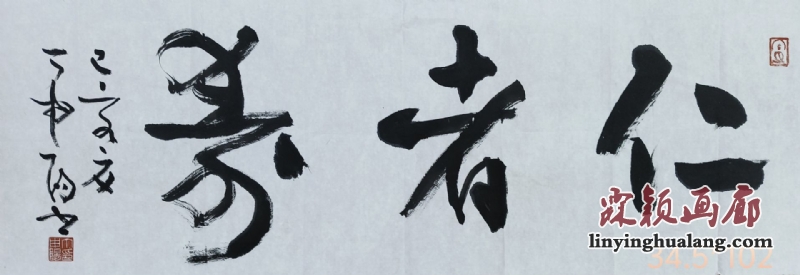 仁者寿
己亥
霖颖画廊
linyinghualang.com
34.5 102